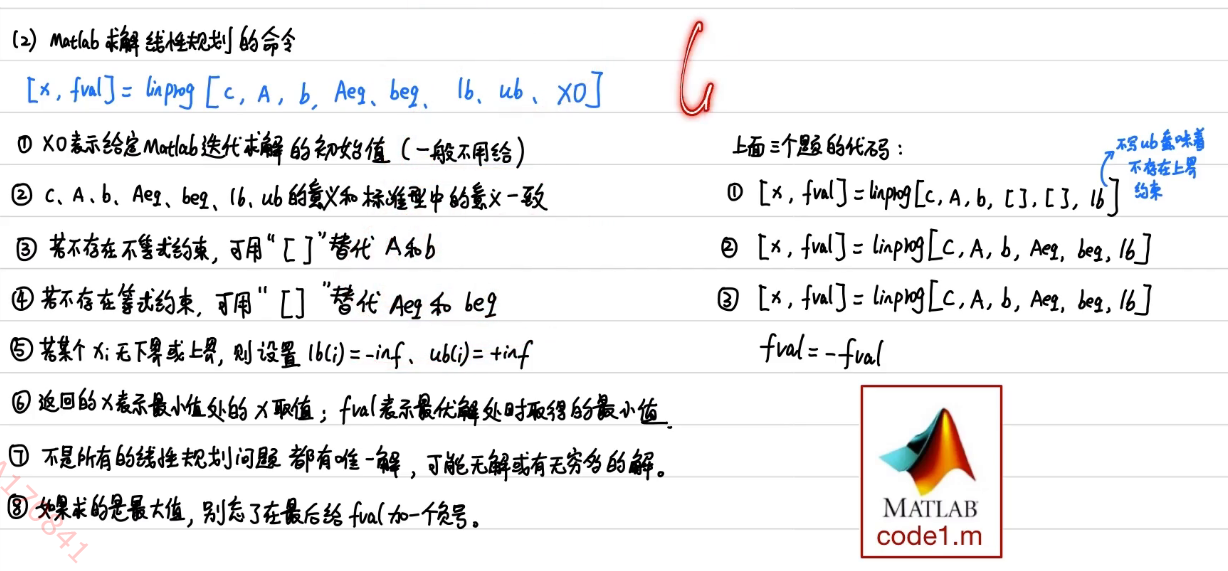 (2) Matlab求解线性规划的命令
[x, fval] = linprog [c, A, b, Aeq、beq、 lb、ub、X0]
① X0表示给定Matlab迭代求解的初始值（一般不用给）
② c、A、b、Aeq、beq、lb、ub的意义和标准型中的意义一致
③ 若不存在不等式约束，可用“[ ]”替代 A和b
④ 若不存在等式约束，可用“[ ]”替代 Aeq 和 beq
⑤ 若某个 xi 无下界或上界，则设置 lb(i)=-inf、ub(i)=+inf
⑥ 返回的x表示最小值处的x取值；fval表示最优解处时取得的最小值.
⑦ 不是所有的线性规划问题都有唯一解，可能无解或有无穷多的解。
⑧ 如果求的是最大值，别忘了在最后给fval加一个负号。
上面三个题的代码：
不写ub意味着
不存在上界
约束
① [x, fval] = linprog[c, A, b, [ ], [ ], lb]
② [x, fval] = linprog[c, A, b, Aeq, beq, lb]
③ [x, fval] = linprog[c, A, b, Aeq, beq, lb]
fval = -fval
MATLAB
code1.m